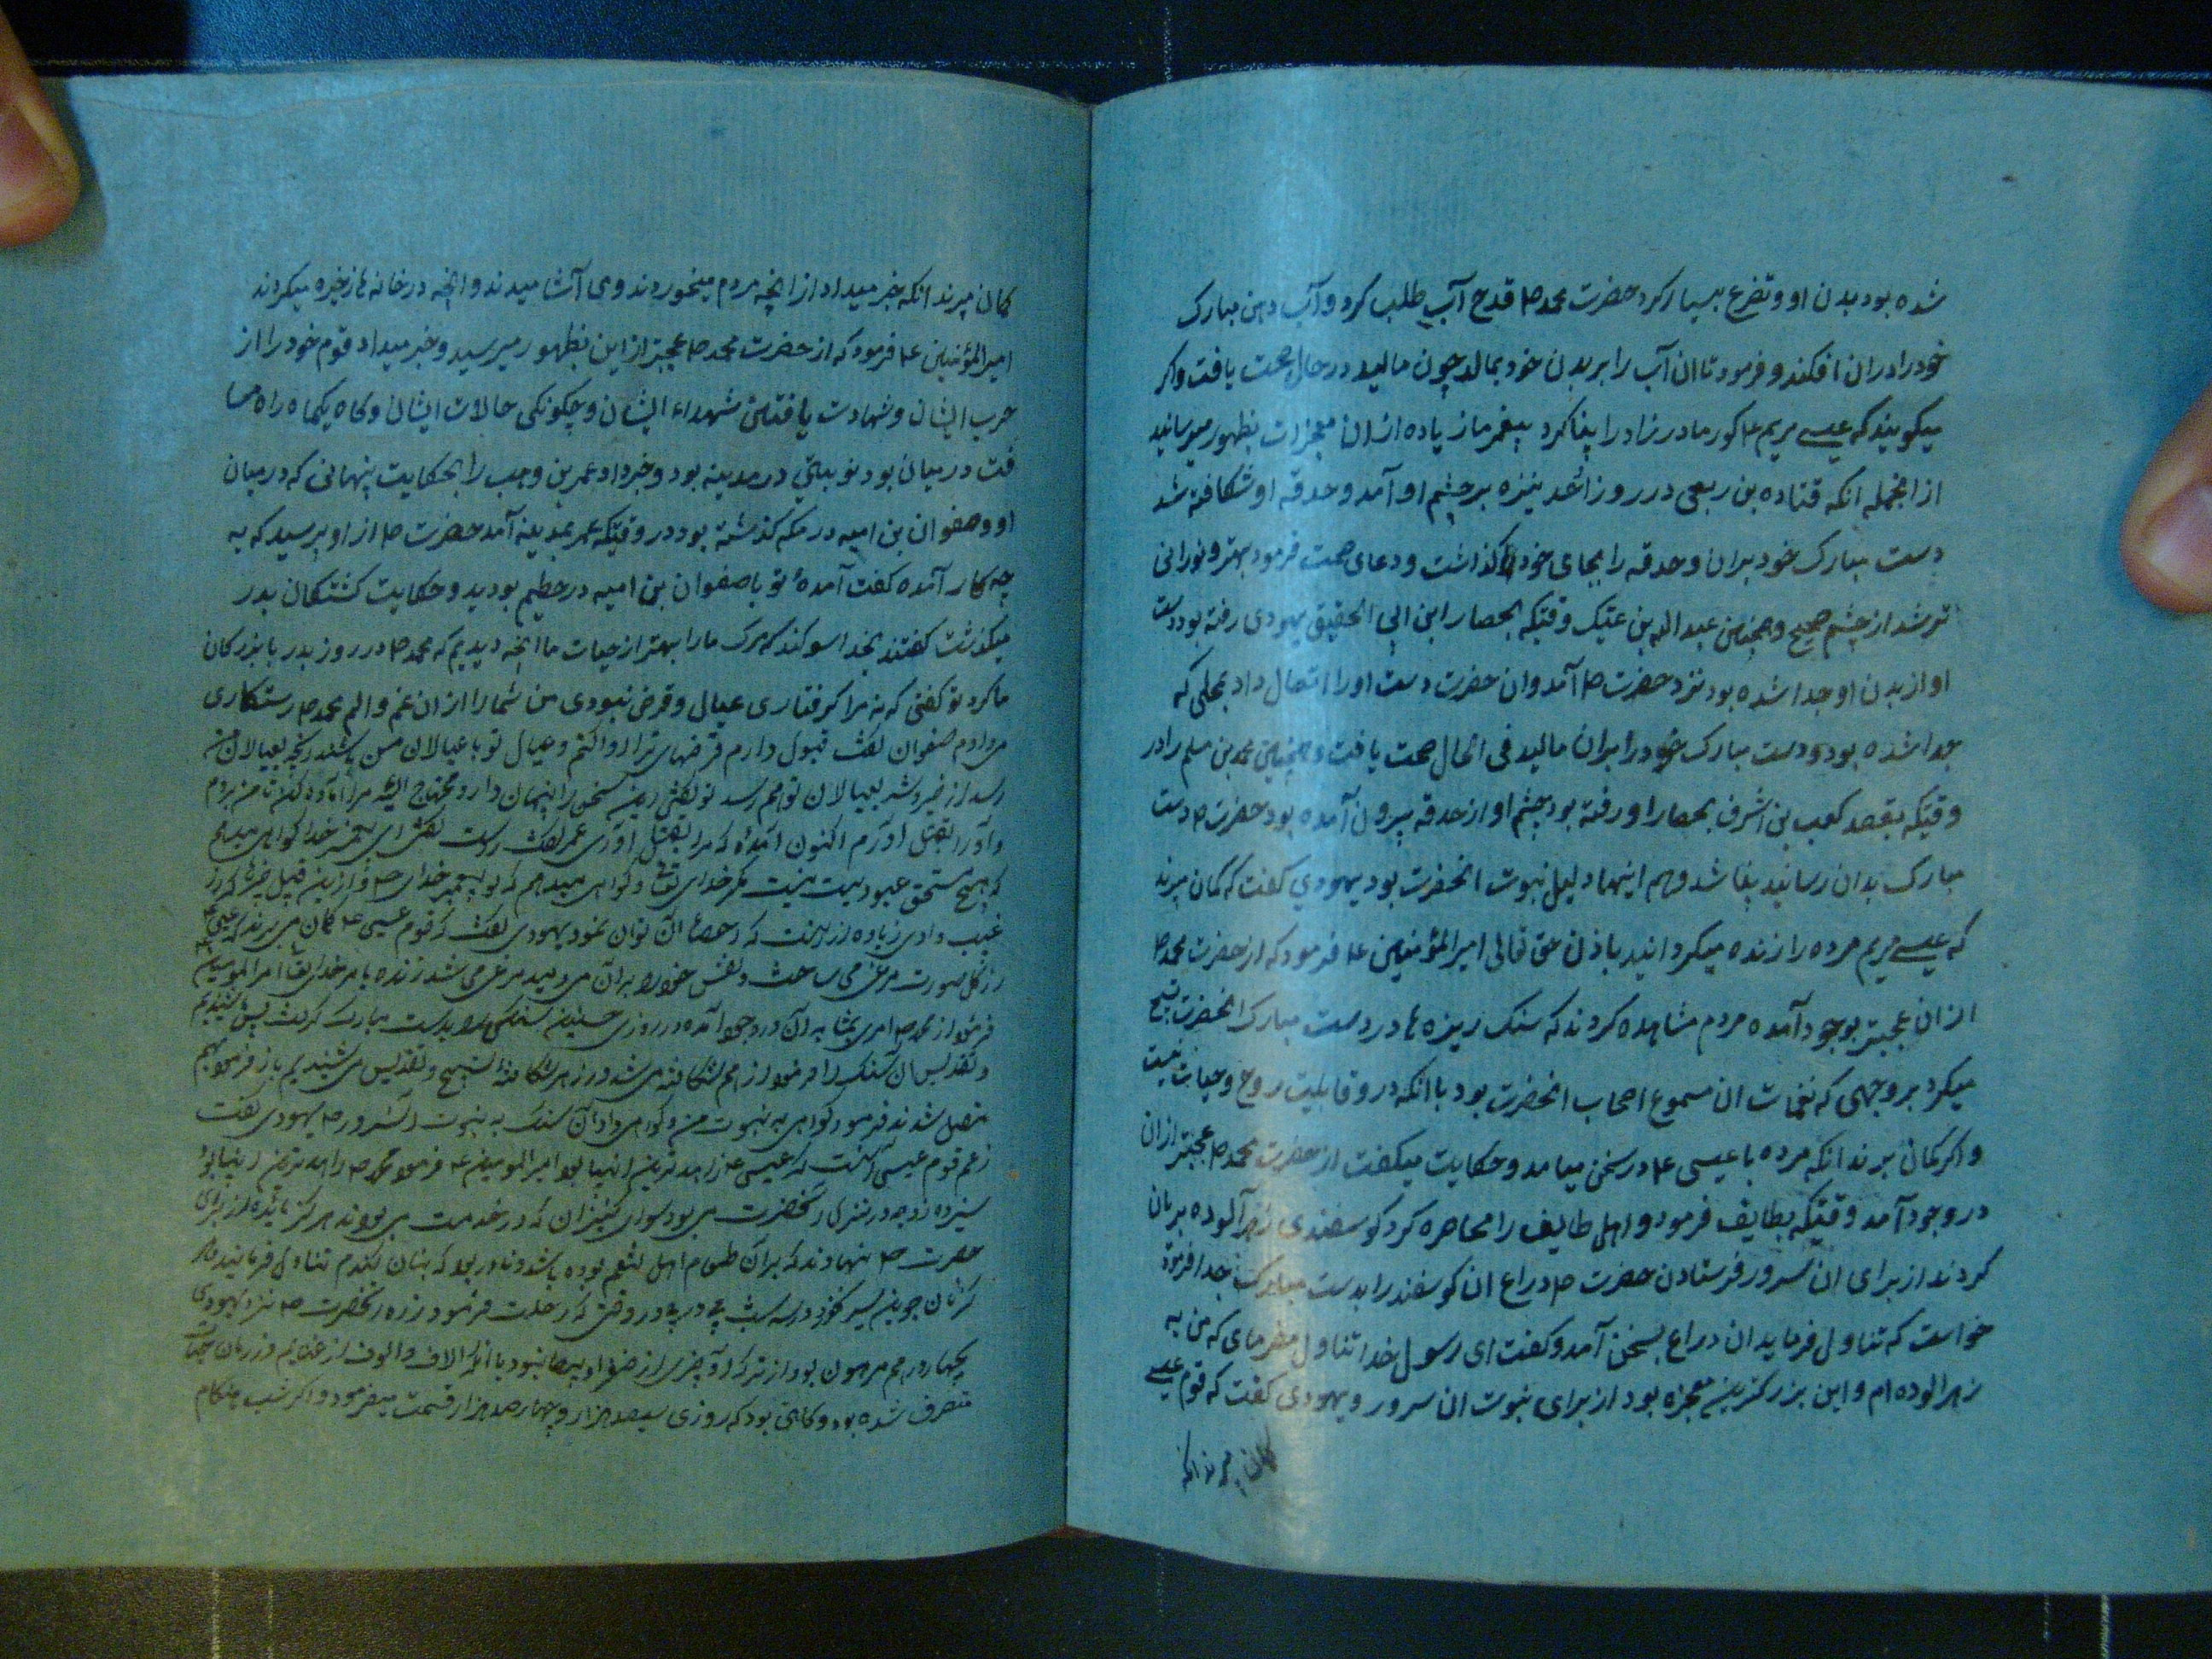 شده بود بدن او و تضرع بسیار کرد حضرت محمد ص قدح آب طلب کرد و آب دهن مبارک
خود را دران افکند و فرمود تا ان آب را بر بدن خود بمالد چون مالید در حال صحت یافت و اکر
میکویند که عیسی مریم ع کور مادر زاد را بینا کرد پیغمر ما زیاده از ان معجزات بظهور میرسانید
از انجمله انکه قتاده بن ربعی در روز احد نیزه بر چشم او آمد و حدقه او شکافته شد
دست مبارک خود بران و حدقه را بجای خود کذاشت و دعای صحت فرمود بهتر و نورانی
تر شد از چشم صحیح و همچنین عبد الله بن عتیک وقتیکه بحصار ابن ابی الحقیق یهودی رفته بود دست
او از بدن او جدا شده بود نزد حضرت ص آمد وان حضرت دست او را اتصال داد بمحلی که
جدا شده بود و دست مبارک خود را بران مالید فی الحال صحت یافت و همچنین محمد بن مسلم را در
وقتیکه بقصد کعب بن اشرف بحصار او رفته بود چشم او از حدقه بیرون آمده بود حضرت ص دست
مبارک بدان رسانید بینا شد و هم اینها دلیل نبوت انحضرت بود یهودی کفت که کمان برند
که عیسی مریم مرده را زنده میکردانید باذن حق تعالی امیر المؤمنین ع فرمود که از حضرت محمد ص
از ان عجبتر بوجود آمده مردم مشاهده کردند که سنک ریزه ها در دست مبارک انحضرت تسبیح
میکرد بر وجهی که نغمات ان مسموع اصحاب انحضرت بود با انکه در و قابلیت روح و حیات نیست
و اکر کمان برند انکه مرده با عیسی ع در سخن میامد و حکایت میکفت از حضرت محمد ص عجبتر از ان
در وجود آمد وقتیکه بطایف فرمود و اهل طایف را محاصره کرد کوسفندی زهر آلوده بریان
کردند از برای ان سرور فرستادن حضرت ص دراع ان کوسفند را بدست مبارک جدا فرمود
خواست که تناول فرماید ان دراع بسخن آمد و کفت ای رسول خدا تناول مفرمای که من به
زهر الوده ام و این بزرکترین معجزه بود از برای نبوت ان سرور و یهودی کفت که قوم عیسی
کمان میبرند انکه
کمان میبرند انکه خبر میداد از انچه مردم میخوردند و می آشامیدند و انچه در خانه ها ذخیره میکردند
امیر المؤمنین ع فرمود که از حضرت محمد ص عجبتر از این بظهور میرسید و خبر میداد قوم خود را از
حرب ایشان و شهادت یافتن شهداء ایشان و چکونکی حالات ایشان و کاه یکماه راه مسا
فت در میان بود نو بیاتی در مدینه بود و خبر داد عمر بن وهب را بحکایت پنهانی که در میان
او و صفوان بن امیه در مکه کذشته بود در وقتیکه عمر بمدینه آمد حضرت ص از او پرسید که به
چه کار آمده کفت آمدهٔ تو با صفوان بن امیه در حطیم بودید و حکایت کشتکان بدر
میکذشت کفتند بخدا سوکند که مرک ما را بهتر از حیات ما انچه دیدیم که محمد ص در روز بدر با بزرکان
ما کرد تو کفتی که نه مرا کرفتاری عیال و قرض نبودی من شما را از ان غم و الم محمد ص رستکاری
می دادم صفوان کفت قبول دارم قرضهای ترا ادا کنم و عیال تو با عیالان من باشند انچه بعیالان من
رسد از خیر و شر بعیالان تو هم رسد تو کفتی این سخن را پنهان دار و محتاج مرا آماده کن تا من بروم
و او را بقتل آورم اکنون آمدهٔ که مرا بقتل آوری عمر کفت راست کفتی ای پیغمبر خدا کواهی میدهم
که هیچ مستحق عبودیت نیست مکر خدای تعالی و کواهی میدهم که تو پیغمبر خدای ص و از این قبیل خبرها که از
غیب دادی زیاده از انست که احصاء آن توان نمود یهودی کفت که قوم عیسی ع کمان می برند که عیسی ع
از کل صورت مرغ می ساخت و نفس خود را بر ان می دمید مرغ می شد زنده بامر خدا تعالی امیر المومنین
فرمود از محمد ص امری بمثابه آن در وجود آمده در روزی حنین سنکی را بدست مبارک کرفت پس شنیدیم
و تقدیس ان سنک را فرمود از هم شکافته می شد و از هر شکافته تسبیح و تقدیس می شنیدیم باز فرمود بهم
متصل شدند فرمود کواهی به نبوت من ده کواهی داد آن سنک به نبوت انسرور ص یهودی کفت
زعم قوم عیسی آنست که عیسی ع زاهد ترین انبیا بود امیر المومنین ع فرمود محمد ص زاهد ترین انبیا بود
سیزده زوجه در منزل انحضرت می بود سوای کنیزان که در خدمت می بودند هرکز مائده از برای
حضرت ص ننهادند که بر آن طعام اهل تنعم بوده باشد و نادر بود که بنان کندم تناول فرمایند
از نان جوین سیر نخورد سه شب پی در پی در وقتی که رحلت فرمود زره انحضرت ص نزد یهودی
بچهار درهم مرهون بود از ترکه او چیزی از صفرا و بیضا نبود با انکه الاف و الوف از غنایم در زمان حیات
متصرف شده بود و کاهی بود که روزی سیصد هزار و چهار صد هزار قسمت میفرمود و اکر شب هنکام